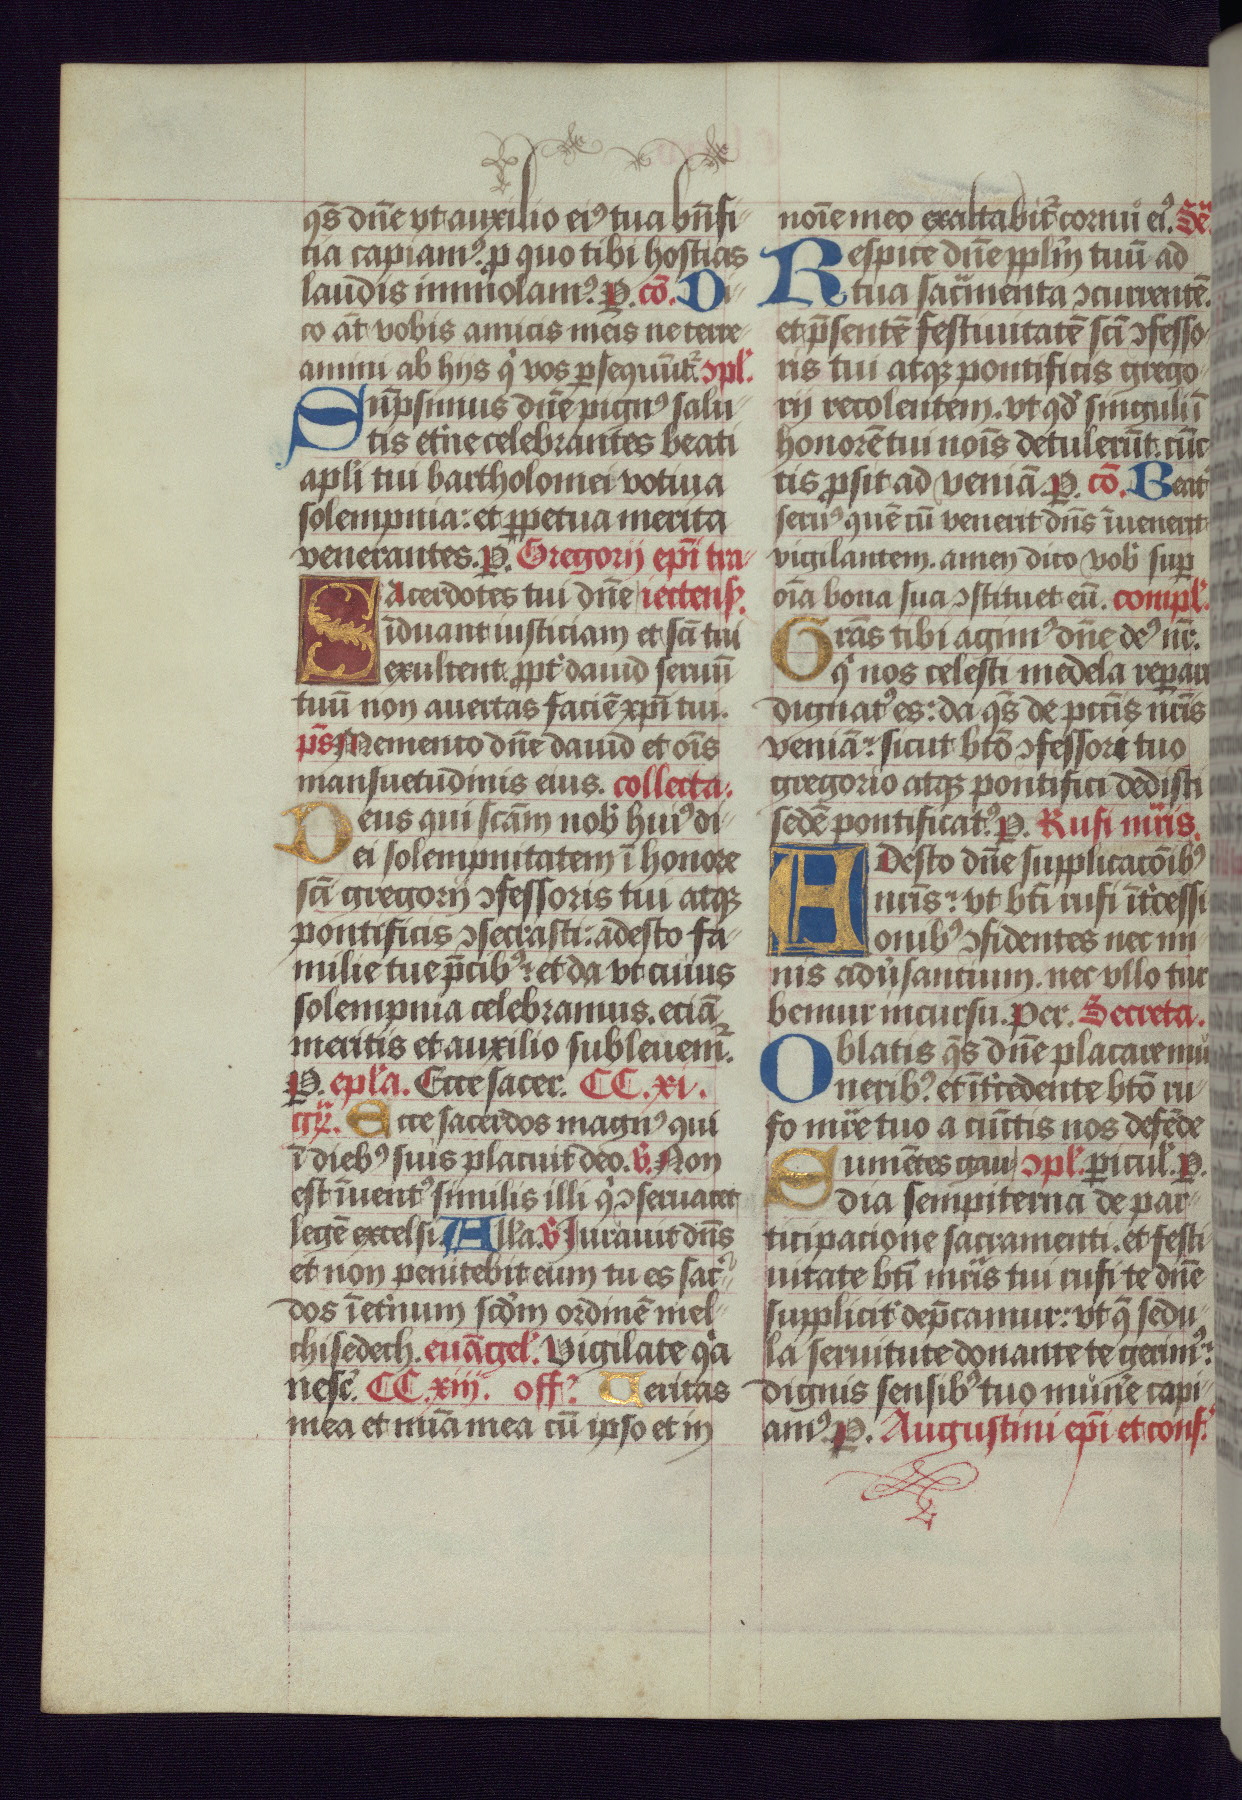 qs̄ dn̄e vt auxilio eiꝰ tua bn̄fi-
cia capiamꝰ. p quo tibi hostias
laudis immolamꝰ. P. cō. Di-
co aūt vobis amicis meis ne terre-
amini ab hijs q̇ vos persequūt᷑. ↄpl̄.
Sūpsimus dn̄e pignꝰ salu-
tis et̄ne celebrantes beati
apl̄i tui bartholomei votiua
solempnia: et ꝑpetua merita
venerantes. P. Gregorij ep̄i tra-
Sacerdotes tui dn̄e iectens̄.
īduant iusticiam et sc̄i tui
exultent. ꝓpt̄ dauid seruū
tuū non auertas faciē xp̄i tui.
p̄s Memento dn̄e dauid et oīs
mansuetudinis eius. collecta.
Deus qui sc̄am nob̄ huiꝰ di-
ei solempnitatem ī honore
sc̄i gregorij ↄfessoris tui atqꝫ
pontificis ↄsecrasti: adesto fa-
milie tue p̄cibꝰ: et da vt cuius
solempnia celebramus. eciā
meritis et auxilio subleuem᷑.
P. epl̄a. Ecce sacer. CC. xi.
gr̄. Ecce sacerdos magnꝰ qui
ī diebꝰ suis placuit deo. v̄. Non
est īuentꝰ similis illi q̇ ↄseruaret
legē excelsi. All̄a. v̄ Iurauit dn̄s
et non penitebit eum tu es sac̄-
dos ī et̄num scd̄m ordinē mel-
chisedech. euāgel̄. Vigilate q̇a
nesc̄. CC. xiij. offꝰ Ueritas
mea et mīa mea cū ipso et in
noīe meo exaltabit᷑ cornu eiꝰ. Se᷑.
Respice dn̄e ppl̄m tuū ad
tua sac̄menta ↄcurrentē.
et p̄sentē festiuitatē sc̄i ↄfesso-
ris tui atqꝫ pontificis grego-
rij recolentem. vt qd̄ singuli ī
honorē tui noīs detulerūt. cūc-
tis ꝓsit ad veniā. P. cō. Beatꝰ
seruꝰ quē cū venerit dn̄s īuenerit
vigilantem. amen dico vob̄ sup̄
oīa bona sua ↄstituet eū. compl̄.
Grās tibi agimꝰ dn̄e deꝰ nr̄.
q̇ nos celesti medela reparar̄
dignatꝰ es: da qs̄ de pcc̄is nr̄is
veniā: sicut bt̄o ↄfessori tuo
gregorio atqꝫ pontifici dedisti
sedē pontificatꝰ. P. Rufi mr̄is.
Adesto dn̄e supplicacōibꝰ
nr̄is: vt bt̄i rufi īt̄cessi
onibꝰ ↄfidentes nec mi-
nis adūsantium. nec vllo tur
bemur incursu. Per. Secreta.
Oblatis qs̄ dn̄e placare mu
neribꝰ. et īt̄cedente bt̄o ru-
fo mr̄e tuo a cūctis nos defēde
Sumētes gau ↄpl̄. picul̄. P.
dia sempiterna de par-
ticipacione sacramenti. et festi-
uitate bt̄i mr̄is tui rufi te dn̄e
supplicit̄ dep̄camur: vt q̄ sedu-
la seruitute donante te gerimꝰ:
dignis sensibꝰ tuo mūne capi-
amꝰ. P. Augustini ep̄i et conf̄.